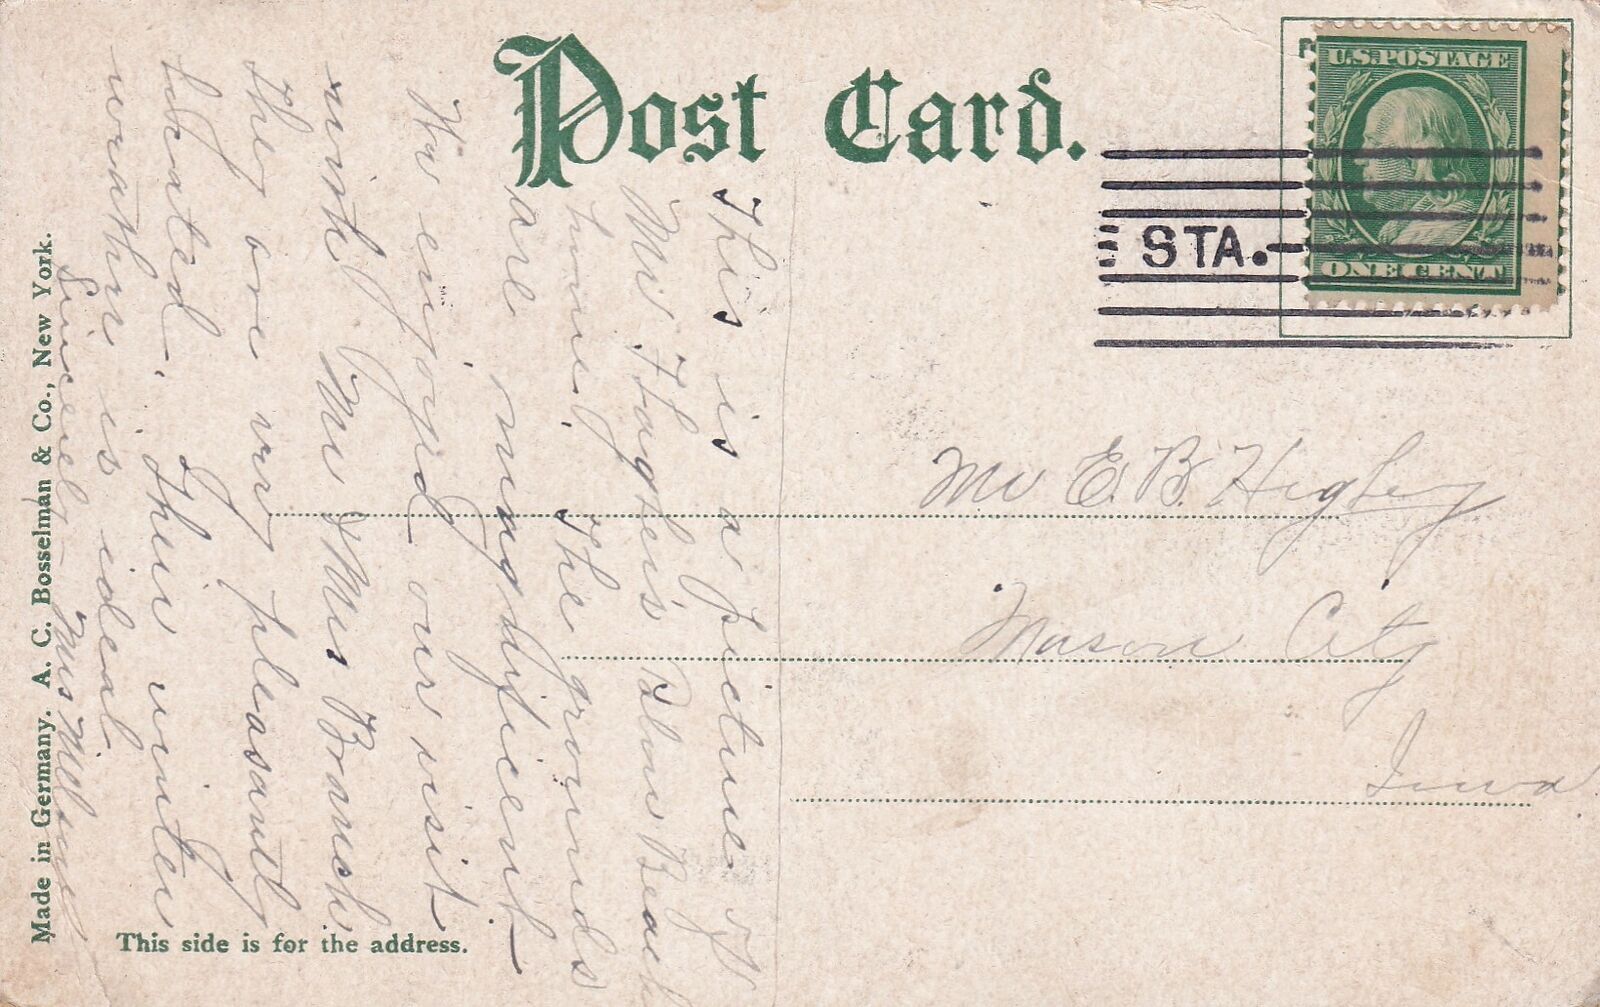 Post Card.
U.S. POSTAGE
ONE CENT
STA.
This is a picture of
Mr Flagler's Palm Beach
home. The grounds
are magnificent
We enjoyed our visit
with Mr & Mrs Branch
They are very pleasantly
located. Their winter
weather is ideal
Sincerely Mrs
Mr E. B. Higley
Mason City
Iowa
Made in Germany. A. C. Bosselman & Co., New York.
This side is for the address.